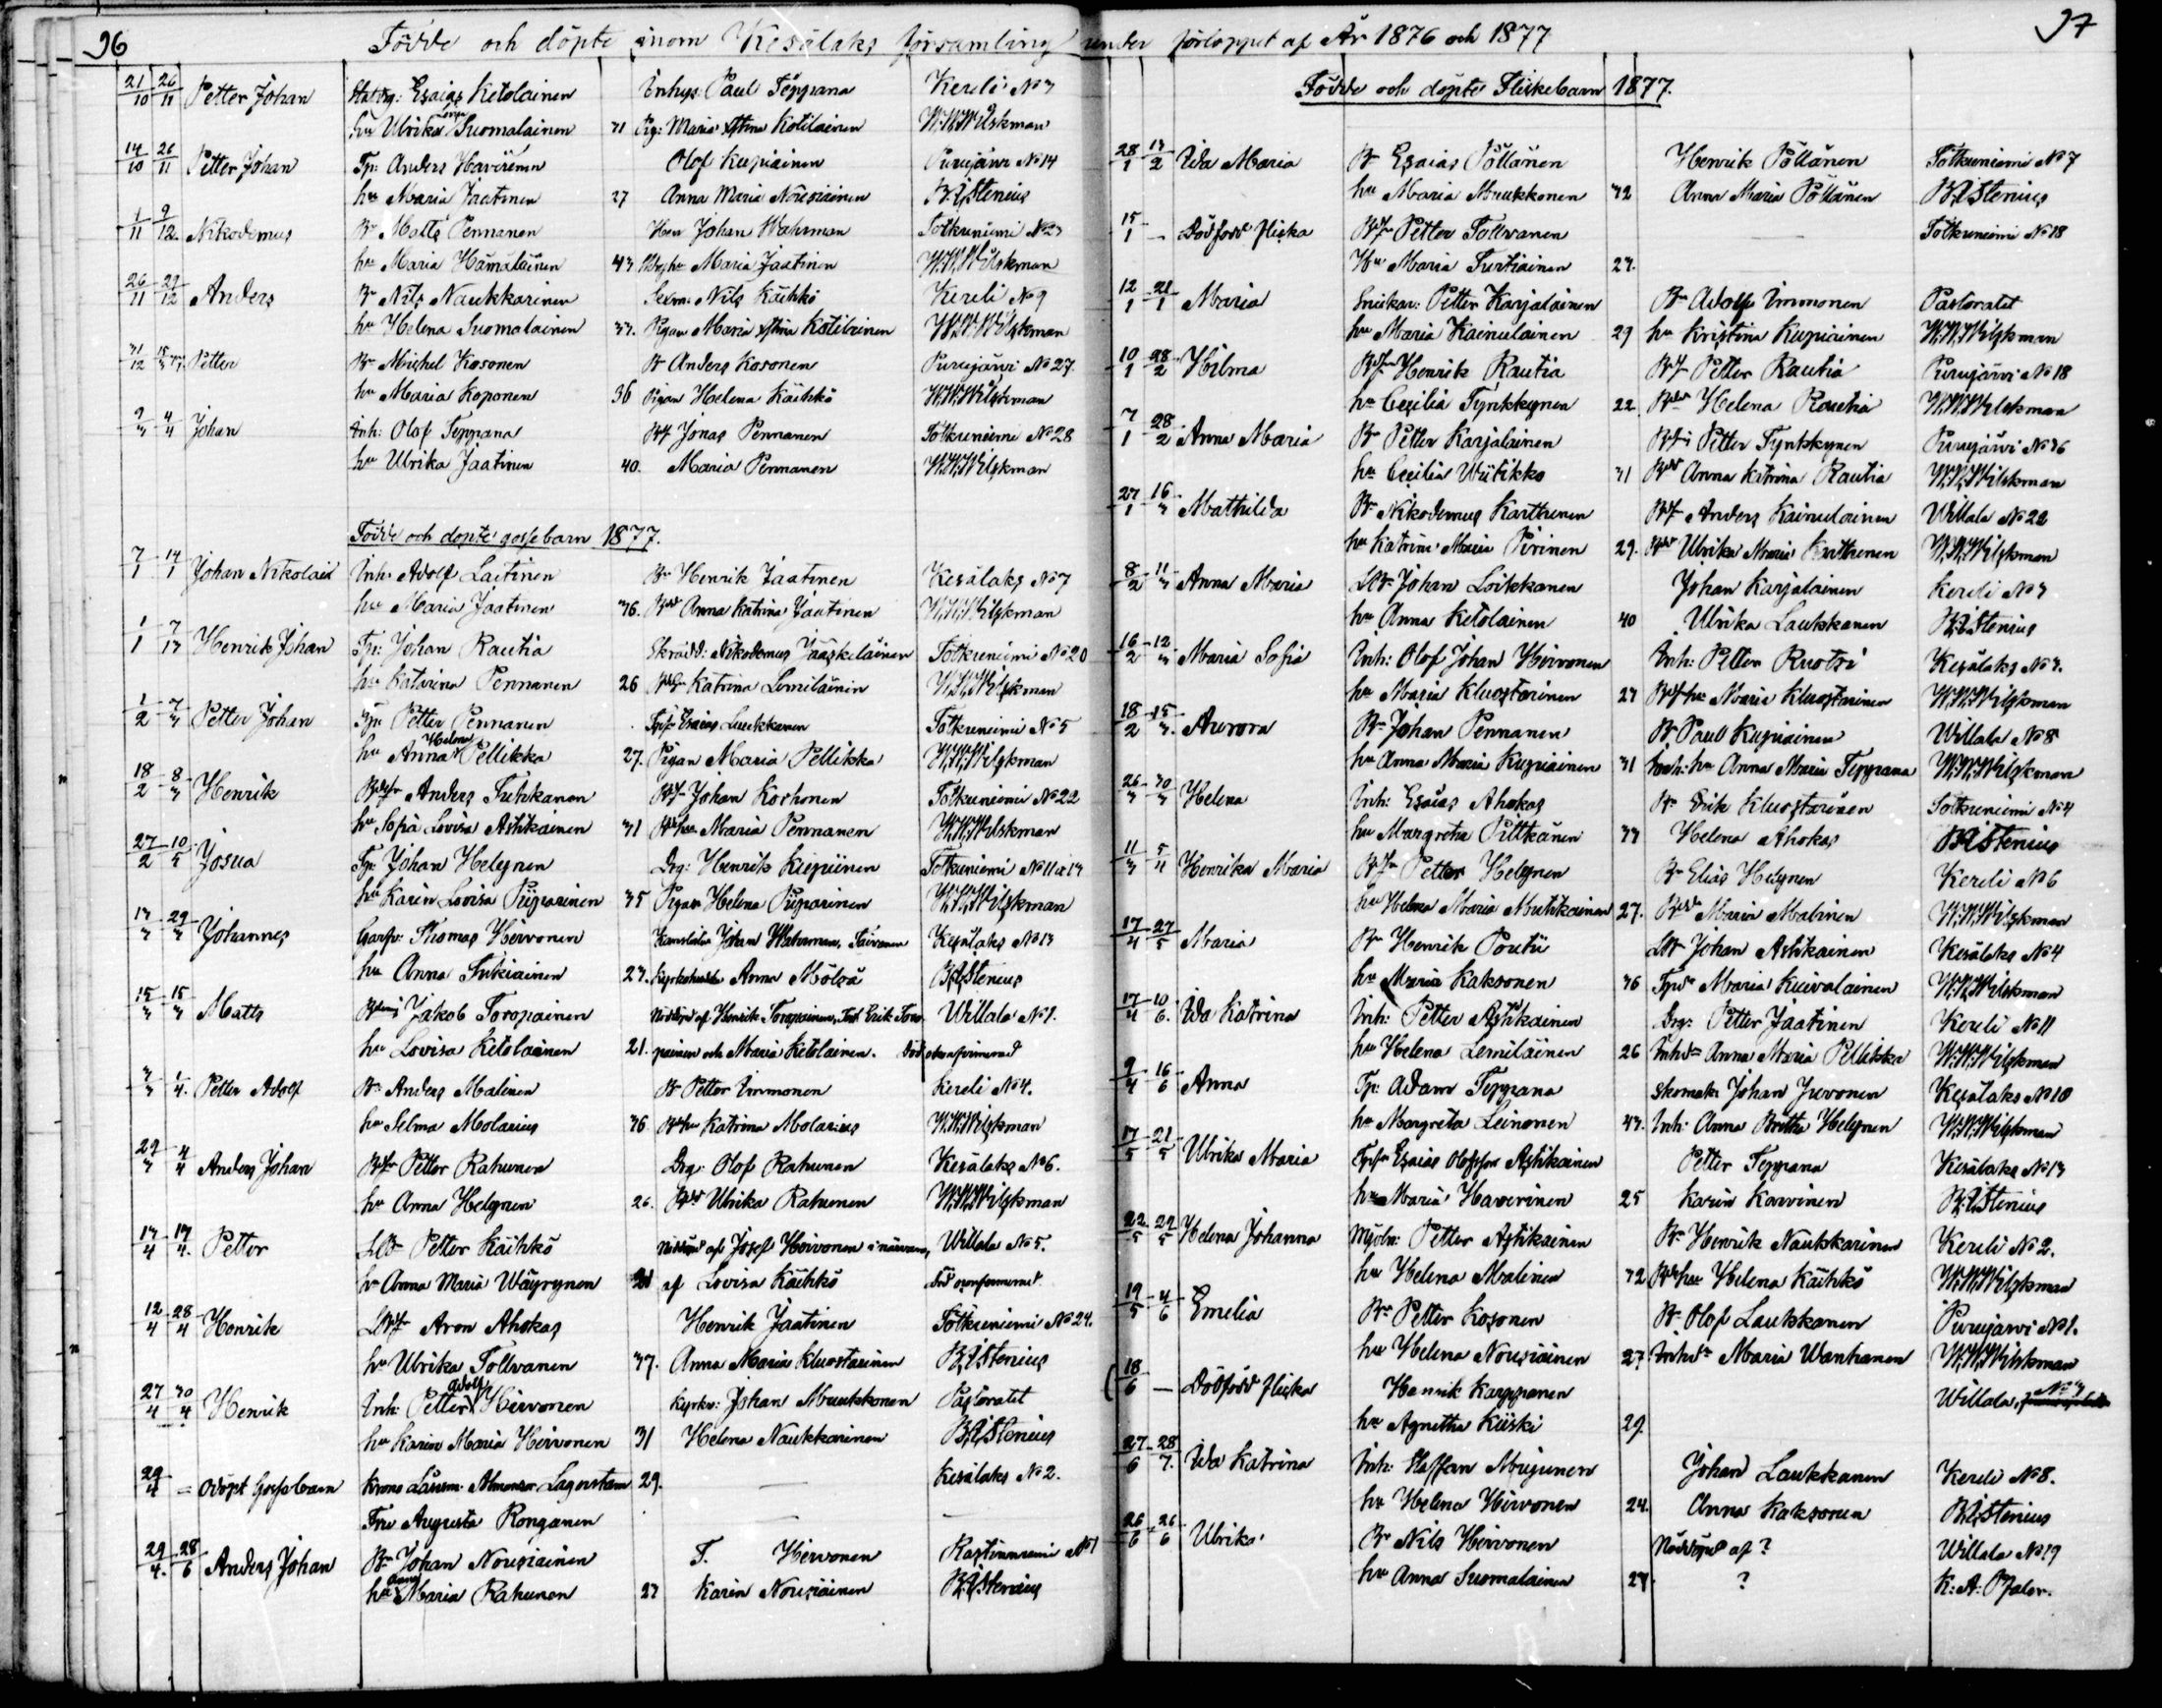 96
Födde och döpte inom Kesälaks församling under förloppet af År 1876 och 1877
97
21/10 26/11 Petter Johan Esaias Ketolainen Inhys: Paul Teppana Kereli No 3
hu Ulrika Suomalainen 31 Pig: Maria Stina Kotilainen W.W.Wilskman
14/10 26/11 Petter Johan Tp: Anders Haverinen Olof Kupiainen Purujärvi No 14
hu Maria Jaatinen 27 Anna Maria Nousiainen B.A.Stenius
1/11 9/12. Nikodemus Bn Matts Pennanen Johan Wahrman Totkuniemi No 23
hu Maria Hämäläinen 43 Maria Jaatinen W.W.Wilskman
26/11 29/12 Anders Bn Nils Naukkarinen Sexm: Nils Käihkö Kereli No 9
hu Helena Suomalainen 33. Pigan Maria Stina Kotilainen W.W.Wilskman
31/12 Petter Bn Michel Kosonen Bn Anders Kosonen Purujärvi No 27.
hu Maria Koponen 36 Pigan Helena Käihkö W.W.Wilskman
9/3 4/4 Johan Inh: Olof Teppana Jonas Pennanen Totkuniemi No 28
hu Ulrika Jaatinen 40. Maria Pennanen W.W.Wilskman
Födde och döpte gossebarn 1877.
7/1 14/1 Johan Nikolai Inh: Adolf Laitinen Bn Henrik Jaatinen Kesälaks No 7
hu Maria Jaatinen 36. Anna Katrina Jaatinen W.W.Wilskman
1/1 Henrik Johan Tp: Johan Rautia Skrädd: Nikodemus Jääskeläinen Totkuniemi No 20
hu Katarina Pennanen 26 Katrina Lemiläinen W.W.Wilskman
1/2 7/3 Petter Johan Tp: Petter Pennanen Esaias Laukkanen Totkuniemi No 5
hu Anna Helena Pellikka 27. Pigan Maria Pellikka W.W.Wilskman
18/2 8/3 Henrik Anders Tuhkanen Johan Korhonen Totkuniemi No 22
hu Sofia Lovisa Asikainen 31 Maria Pennanen W.W.Wilskman
27/2 10/5 Josua Tp: Johan Helynen Drg: Henrik Kiepiinen Totkuniemi No 11 a 13
hu Karin Lovisa Piiparinen 35 Pigan Helena Piiparinen W.W.Wilskman
13/3 29/3 Johannes Garfv: Thomas Hirvonen Johan Wahrman, Kesälaks No 13
hu Anna Tukiainen 23. Anna Mölsä B.A.Stenius
15/3 15/3 Matts Jakob Toropainen Nöddöpt af Henrik Toropainen, Erik Toro- Willala No 1.
hu Lovisa Ketolainen 21. painen och Maria Ketolainen. Död okonfirmerad
3/3 1/4. Petter Adolf Bn Anders Malinen Bn Petter Immonen Kereli No 4.
hu Selma Molarius 36 Katrina Molarius W.W.Wilskman
29/3 4/4 Anders Johan Petter Rahunen Drg: Olof Rahunen Kesälaks No 6.
hu Anna Helynen 26. Ulrika Rahunen W.W.Wilskman
13/4 17/4. Petter Petter Käihkö Nöddöpt af Josef Hirvonen i närvaro, Willala No 5.
hu Anna Maria Wäyrynen 21 af Lovisa Käihkö Död
12/4 28/4 Henrik Aron Ahokas Henrik Jaatinen Totkuniemi No 24.
hu Ulrika Tolvanen 37. Anna Maria Kluostarinen B.A.Stenius
27/4 30/4 Henrik Inh: Petter Adolf Hirvonen Kyrkv: Johan Muukkonen Pastoratet
hu Karin Maria Hirvonen 31 Helena Naukkarinen B.A.Stenius
29/4 = Odöpt Gossebarn Krono Länsm: Lagerstam 29. Kesälaks No 2.
Fru Augusta Ronganen
29/4. 28/6 Anders Johan Bn Johan Nousiainen T. Hirvonen No 1
hu Anna Maria Rahunen 27 Karin Nousiainen B.A.Stenius
Födde och döpte Flickebarn 1877.
28/1 13/2 Ida Maria Bn Esaias Pöllänen Henrik Pöllänen Totkuniemi No 7
hu Maria Muukkonen 32 Anna Maria Pöllänen B.A.Stenius
15/1 — Dödfödd flicka Petter Tolvanen — Totkuniemi No 18
hu Maria Turtiainen 23.
12/1 21/1 Maria Snickar: Petter Karjalainen Bn Adolf Immonen Pastoratet
hu Maria Kainulainen 29 hu Kristina Kupiainen W.W.Wilskman
10/1 28/2 Hilma Henrik Rautia Petter Rautia Purujärvi No 18
hu Cecilia Tynkkynen 22 Helena Rautia W.W.Wilskman
7/1 28/2 Anna Maria Bn Petter Karjalainen Petter Tynkkynen Purujärvi No 36
hu Cecilia Wiitikko 31 Anna Katrina Rautia W.W.Wilskman
27/1 16/3 Mathilda Bn Nikodemus Karttunen Anders Kainulainen Willala No 22
hu Katrina Maria Pirinen 29. Ulrika Maria Karttunen W.W.Wilskman
8/2 11/3 Anna Maria Johan Loikkanen Johan Karjalainen Kereli No 3
hu Anna Ketolainen 40 Ulrika Laukkanen B.A.Stenius
16/2 12/3 Maria Sofia Inh: Olof Johan Hirvonen Inh: Petter Ruotsi Kesälaks No 3.
hu Maria Kluostarinen 27 Maria Kluostarinen W.W.Wilskman
18/2 15/3. Aurora Bn Johan Pennanen Bn Paul Kupiainen Willala No 8
hu Anna Maria Kupiainen 31 Inh: hu Anna Maria Teppana W.W.Wilskman
26/3 30/3 Helena Inh: Esaias Ahokas Bn Erik Kluostarinen Totkuniemi No 4
hu Margretha Pitkänen 33 Helena Ahokas B.A.Stenius
11/3 5/4 Henrika Maria Petter Helynen Bn Elias Helynen Kereli No 6
hu Helena Maria Mutikainen 27. Maria Malinen W.W.Wilskman
17/4 27/5 Maria Bn Henrik Poutii Johan Asikainen Kesälaks No 4
hu Maria Kaksonen 36 Maria Kuivalainen W.W.Wilskman
17/4 10/6. Ida Katrina Inh: Petter Asikainen Drg: Petter Jaatinen Kereli No 11
hu Helena Lemiläinen 26 Anna Maria Pellikka W.W.Wilskman
9/4 16/6 Anna Tp: Adam Teppana Skomak: Johan Juvonen Kesälaks No 10
hu Margreta Leinonen 43. Inh: Anna Britta Helynen W.W.Wilskman
17/5 21/5 Ulrika Maria Esaias Olofsson Asikainen Petter Teppana Kesälaks No 13
hu Maria Haverinen 25 Karin Karvinen B.A.Stenius
22/5 29/5 Helena Johanna Mjöln: Petter Asikainen Bn Henrik Naukkarinen Kereli No 2.
hu Helena Malinen 32 Helena Käihkö W.W.Wilskman
19/5 4/6 Emelia Bn Petter Kosonen Bn Olof Laukkanen Purujärvi No 1.
hu Helena Nousiainen 27 Maria Wanhanen W.W.Wilskman
18/6 — Dödfödd flicka Henrik Karppanen Willala, No 3
hu Agnetha Kiiski 29.
27/6 28/7. Ida Katrina Inh: Staffan Mujunen Johan Laukkanen Kereli No 8.
hu Helena Hirvonen 24. Anna Kaksonen B.A.Stenius
26/6 26/6 Ulrika Bn Nils Hirvonen Nöddöpt af ? Willala No 19
hu Anna Suomalainen 27 ?